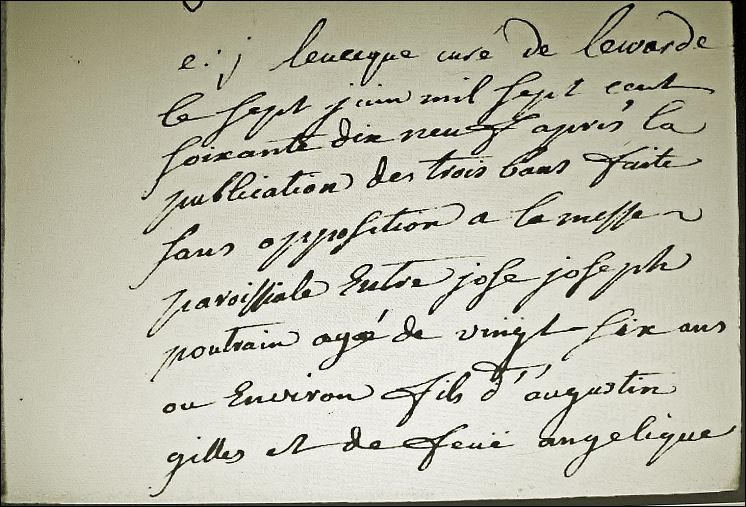 e: j leucque curé de lewarde
le sept juin mil sept cent
soixante dix neuf après la
publication des trois bans faite
sans opposition a la messe
paroissiale Entre jose joseph
poutrain agé de vingt six ans
ou Environ fils d'augustin
gilles et de feuë angelique